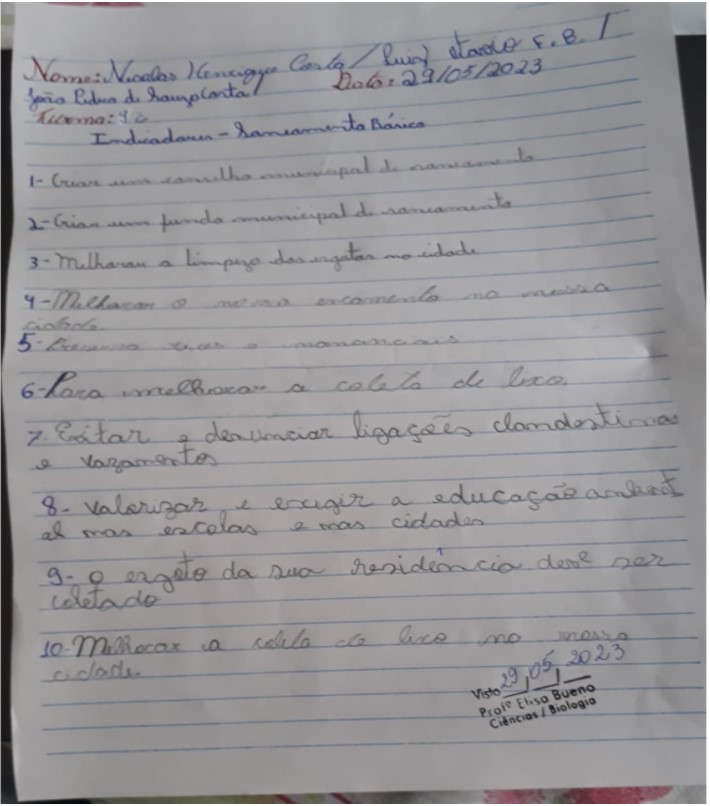 Nome: Nicolas Henrique Costa / Luiz otavio F. B. /
João Pedro de Souza Costa/ Data: 29/05/2023
Turma: 9º
Indicadores - Saneamento Básico
1- Criar um conselho municipal de saneamento
2- Criar um fundo municipal de saneamento
3- Melhorar a limpeza dos esgotos na cidade
4- Melhorar o nosso encamento na nossa
cidade.
5- o mananciais
6- Para melhorar a coleta de lixo.
7. Evitar e denunciar ligações clandestinas
e vazamentos
8- valorizar e exigir a educação ambient
al nas escolas e nas cidades
9- o ezgoto da sua residência deve ser
coletado
10- Melhorar a coleta de lixo na nossa
cidade.
Visto 29/05/2023
Profª Elisa Bueno
Ciências / Biologia